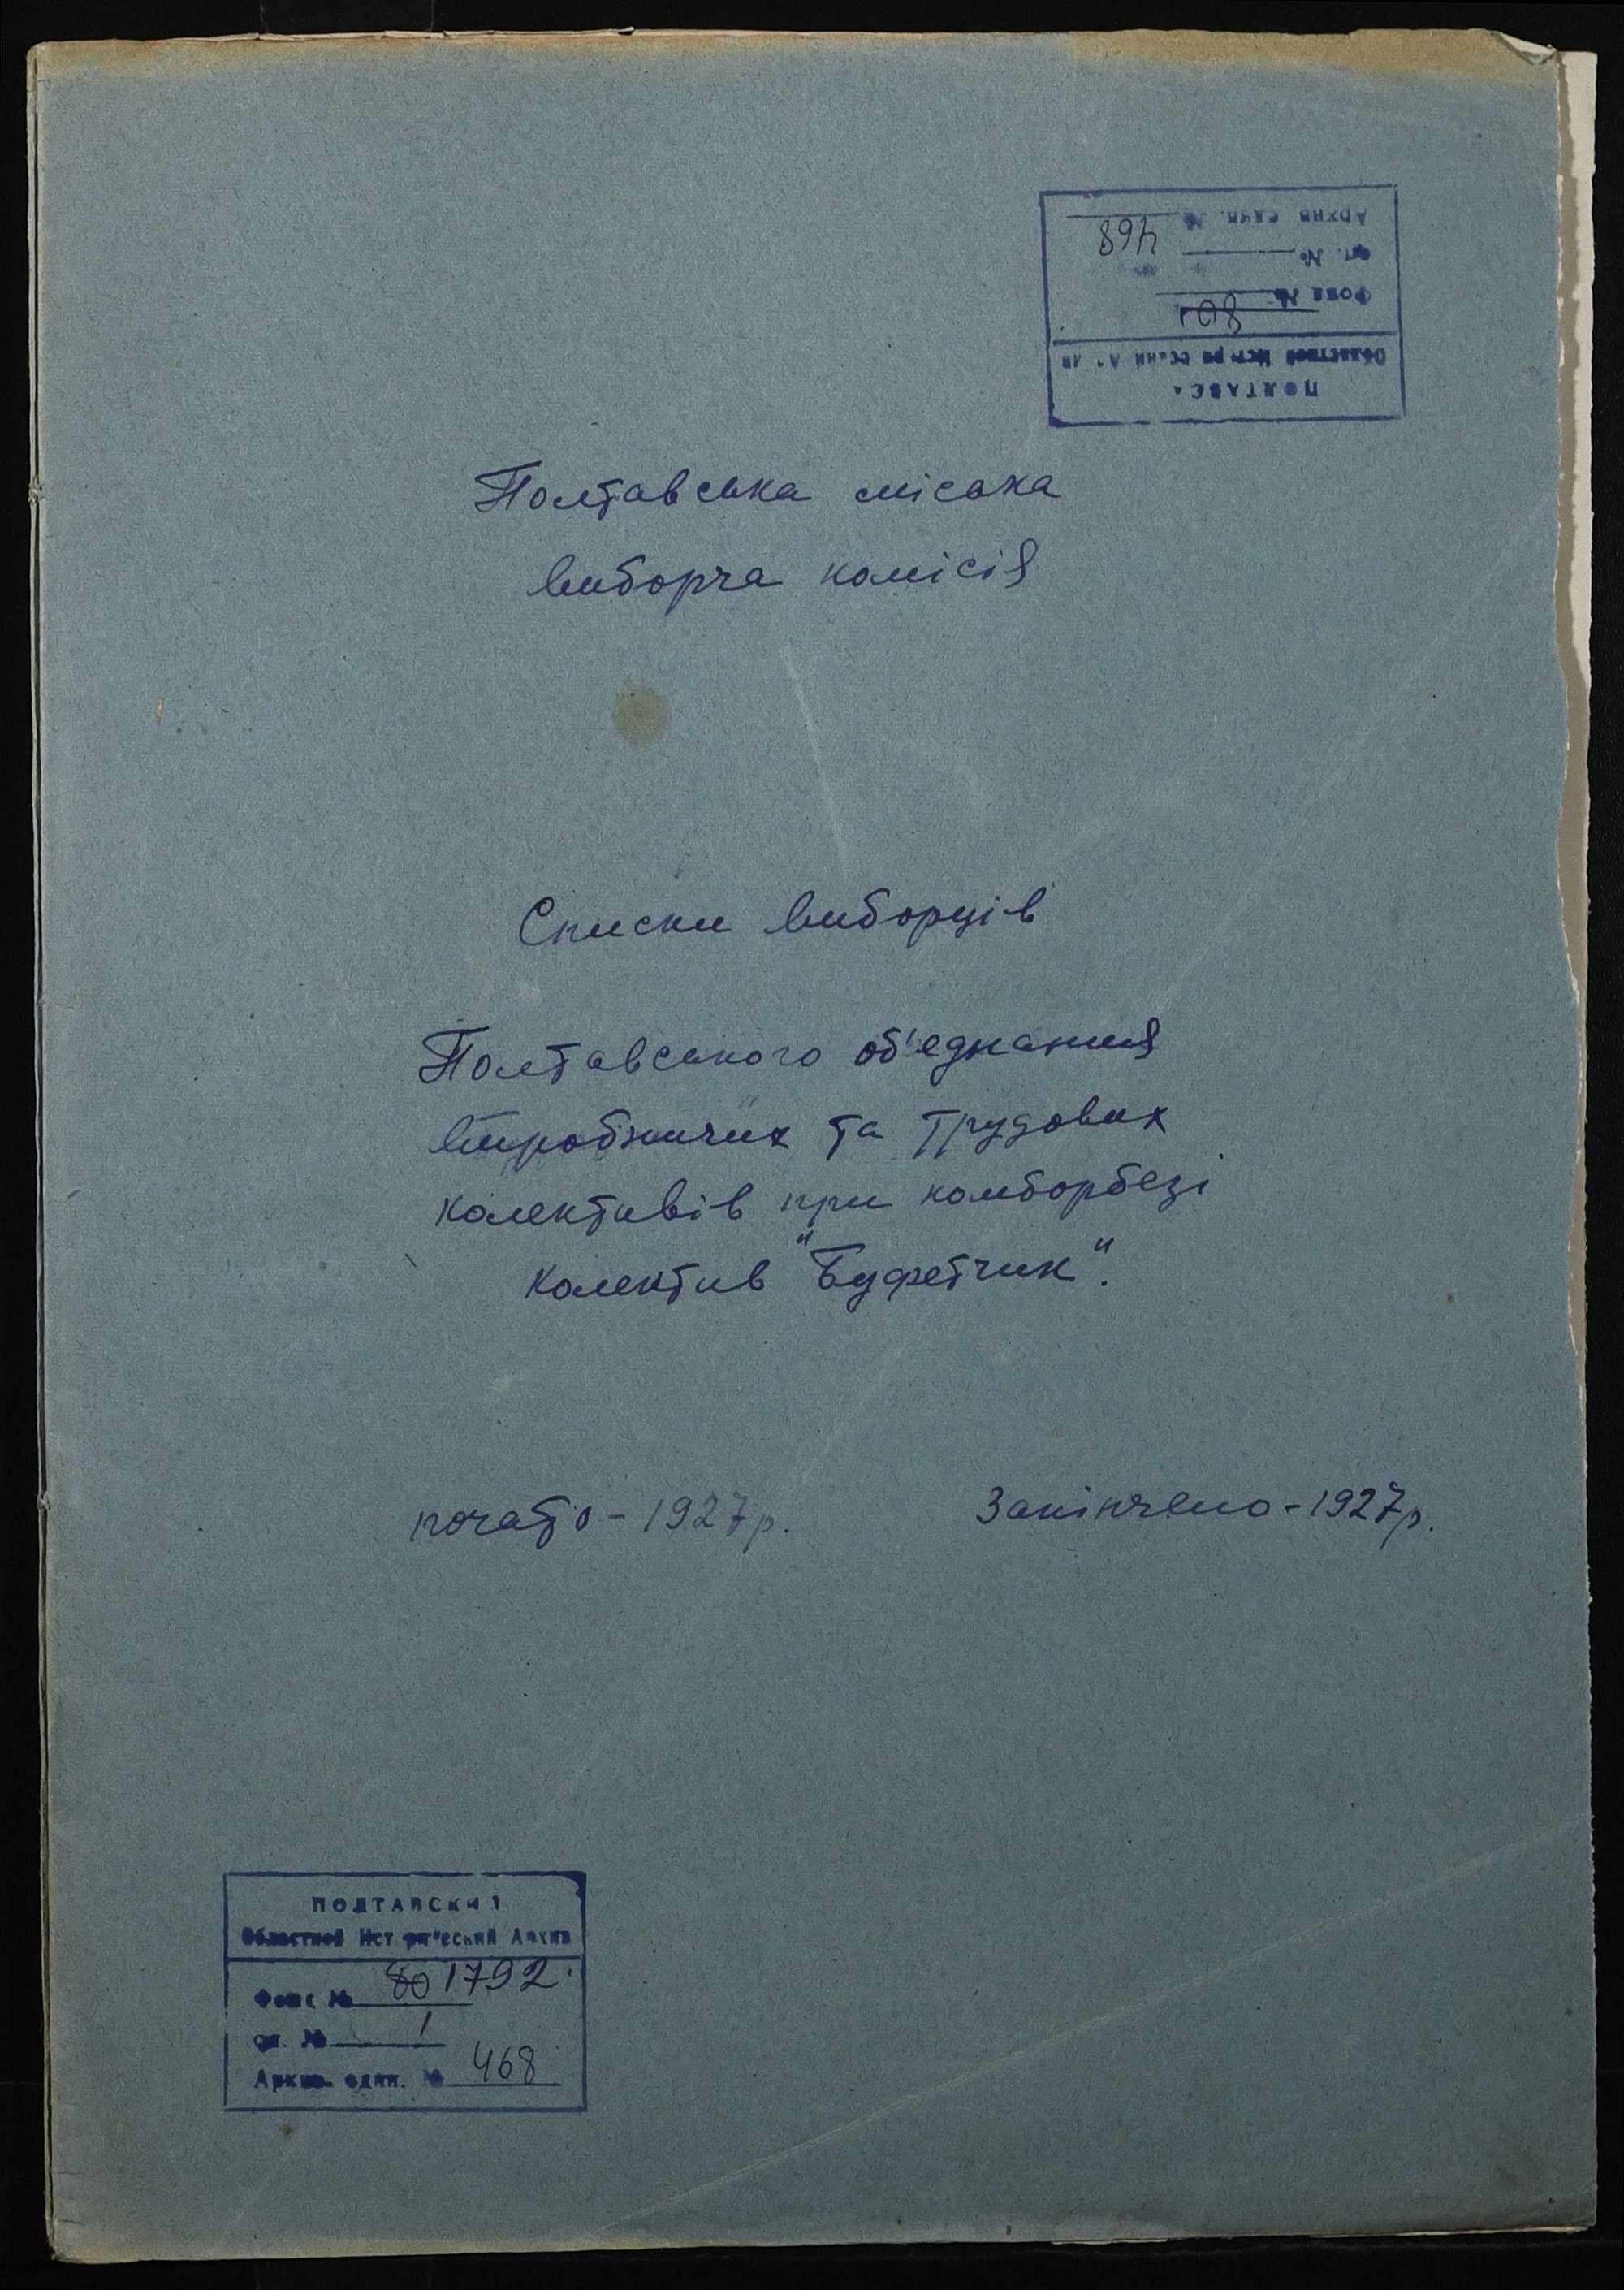 Архив. един. № 468
оп. №
Фонд № 801
Областной Исторический Архив
ПОЛТАВСКИЙ
Полтавська міська
виборча комісія
Списки виборців
Полтавського об'єднання
виробничих та трудових
колективів при комборбезі
колектив "Буфетчик".
почато - 1927 р.
Закінчено - 1927 р.
ПОЛТАВСКИЙ
Областной Исторический Архив
Фонд № 80 1792.
оп. № 1
Архив. един. № 468